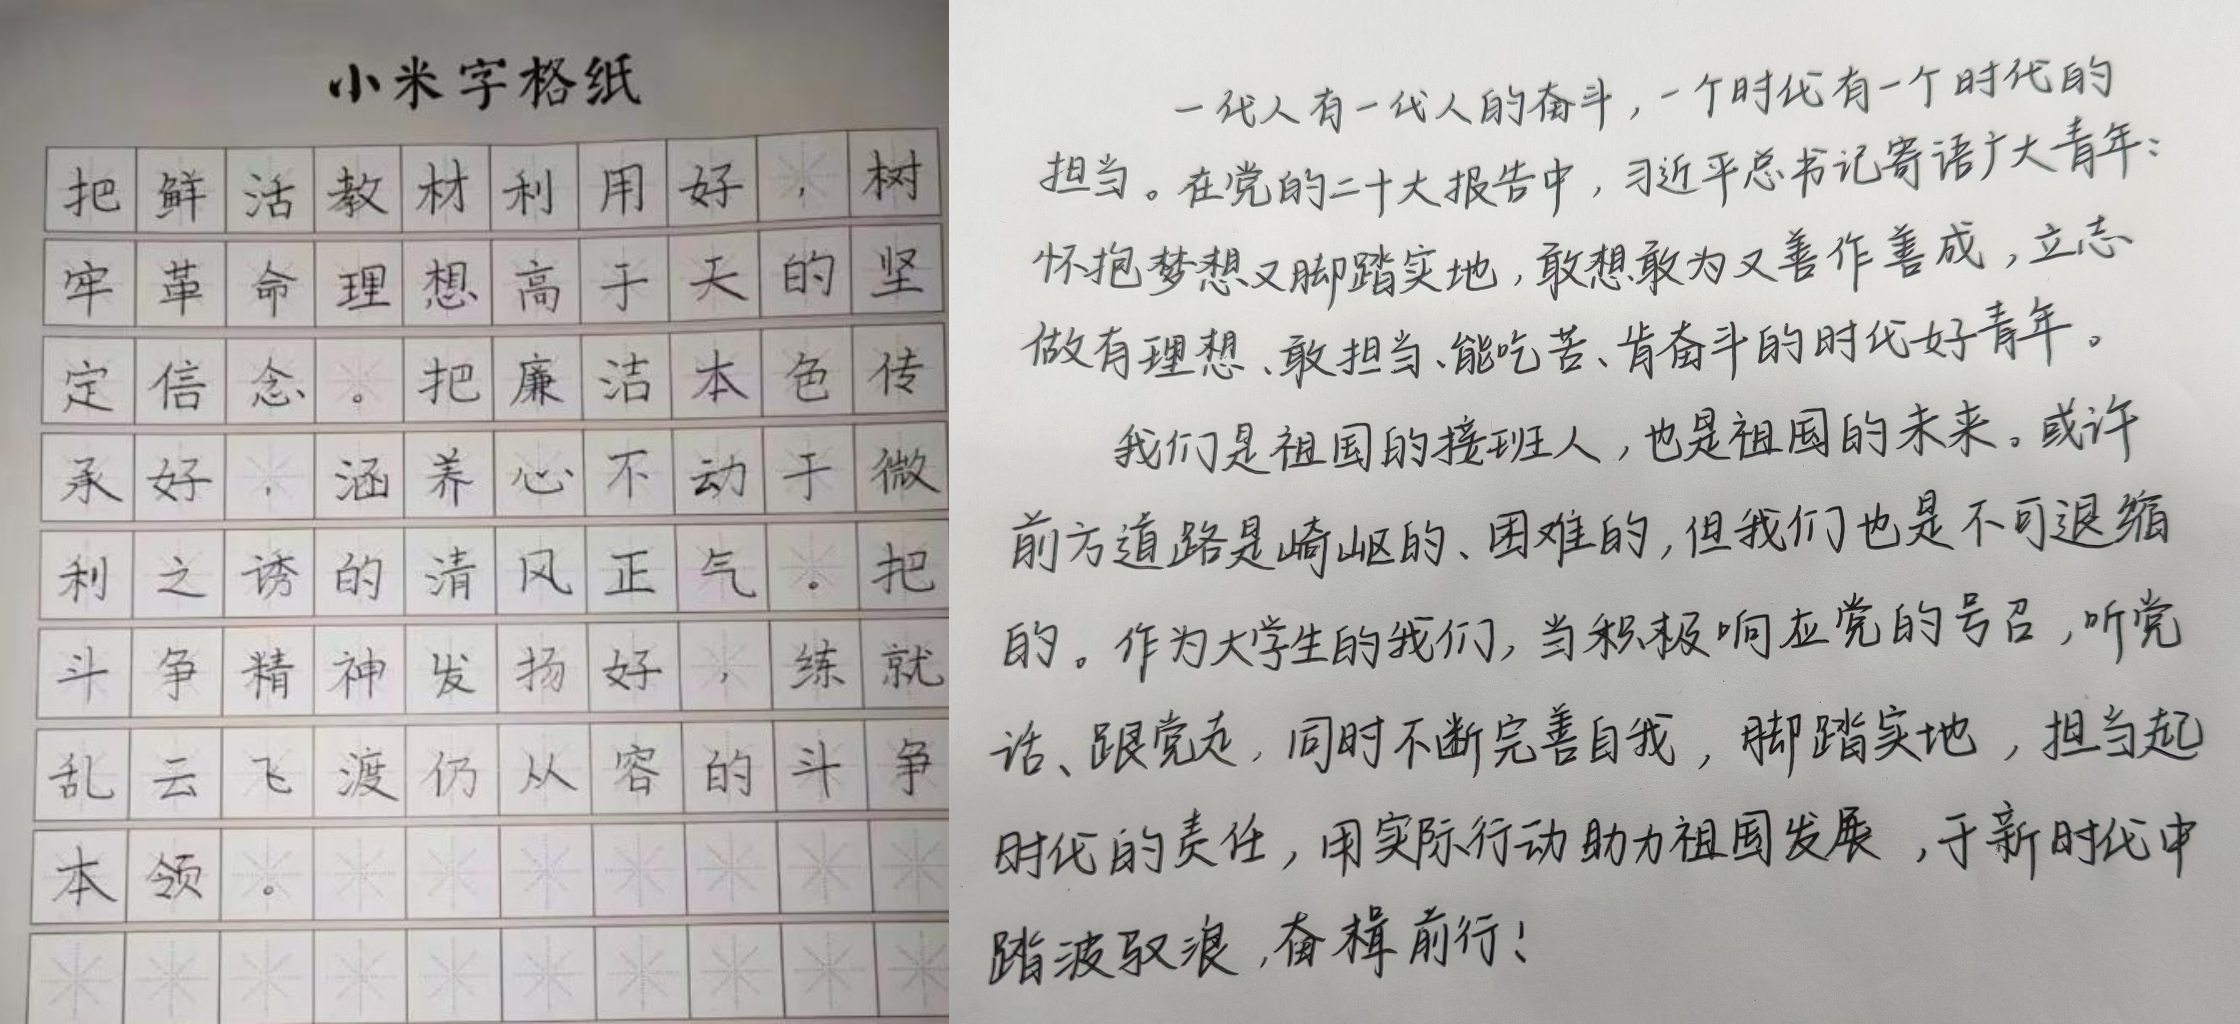 小米字格纸
把鲜活教材利用好，树
牢革命理想高于天的坚
定信念。把廉洁本色传
承好，涵养心不动于微
利之诱的清风正气。把
斗争精神发扬好，练就
乱云飞渡仍从容的斗争
本领。
一代人有一代人的奋斗，一个时代有一个时代的
担当。在党的二十大报告中，习近平总书记寄语广大青年：
怀抱梦想又脚踏实地，敢想敢为又善作善成，立志
做有理想、敢担当、能吃苦、肯奋斗的时代好青年。
我们是祖国的接班人，也是祖国的未来。或许
前方道路是崎岖的、困难的，但我们也是不可退缩
的。作为大学生的我们，当积极响应党的号召，听党
话、跟党走，同时不断完善自我，脚踏实地，担当起
时代的责任，用实际行动助力祖国发展，于新时代中
踏波驭浪，奋楫前行！